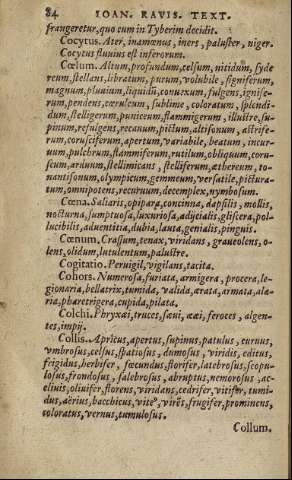 84 IOAN. RAVIS. TEXT.
frangeretur, quo cum in Tyberim decidit.
Cocytus. Ater, inamœnus, iners, paluster, niger.
Cocytus fluuius est inferorum.
Cœlum. Altum, profundum, celsum, nitidum, syde
reum, stellans, libratum, purum, volubile, signiferum,
magnum, pluuium, liquidũ, conuexum, fulgens, ignife-
rum, pendens, cœruleum, sublime, coloratum, splendi-
dum, stelligerum, puniceum, flammigerum, illustre, su-
pinum, refulgens, recanum, pictum, altisonum, astrife-
rum, corusciferum, apertum, variabile, beatum, incur-
uum, pulchrum, flammiferum, rutilum, obliquum, coru-
scum, arduum, stellimicans, stelliferum, æthereum, to-
nantisonum, olympicum, gemineum, versatile, pictura-
tum, omnipotens, recuruum, decemplex, nymbosum.
Cœna. Saliaris, opipara, concinna, dapsilis, mollis,
nocturna, sumptuosa, luxuriosa, adijcialis, gliscera, pol-
lucibilis, aduentitia, dubia, lauta, genialis, pinguis.
Cœnum. Crassum, tenax, viridans, graueolens, o-
lens, olidum, lutulentum, palustre.
Cogitatio. Peruigil, vigilans, tacita.
Cohors. Numerosa, furiata, armigera, procera, le-
gionaria, bellatrix, tumida, valida, ærata, armata, ala-
ria, pharetrigera, cupida, pilata.
Colchi. Phryxæi, truces, sæui, ææi, feroces, algen-
tes, impij.
Collis. Apricus, apertus, supinus, patulus, curuus,
vmbrosus, celsus, spatiosus, dumosus, viridis, editus,
frigidus, herbifer, fœcundus, florifer, latebrosus, scopu-
losus, frondosus, salebrosus, abruptus, nemorosus, ac-
cliuis, oliuifer, florens, viridans, cedrifer, vitifer, tumi-
dus, aërius, bacchicus, frugifer, prominens,
coloratus, vernus, tumulosus.
Collum.